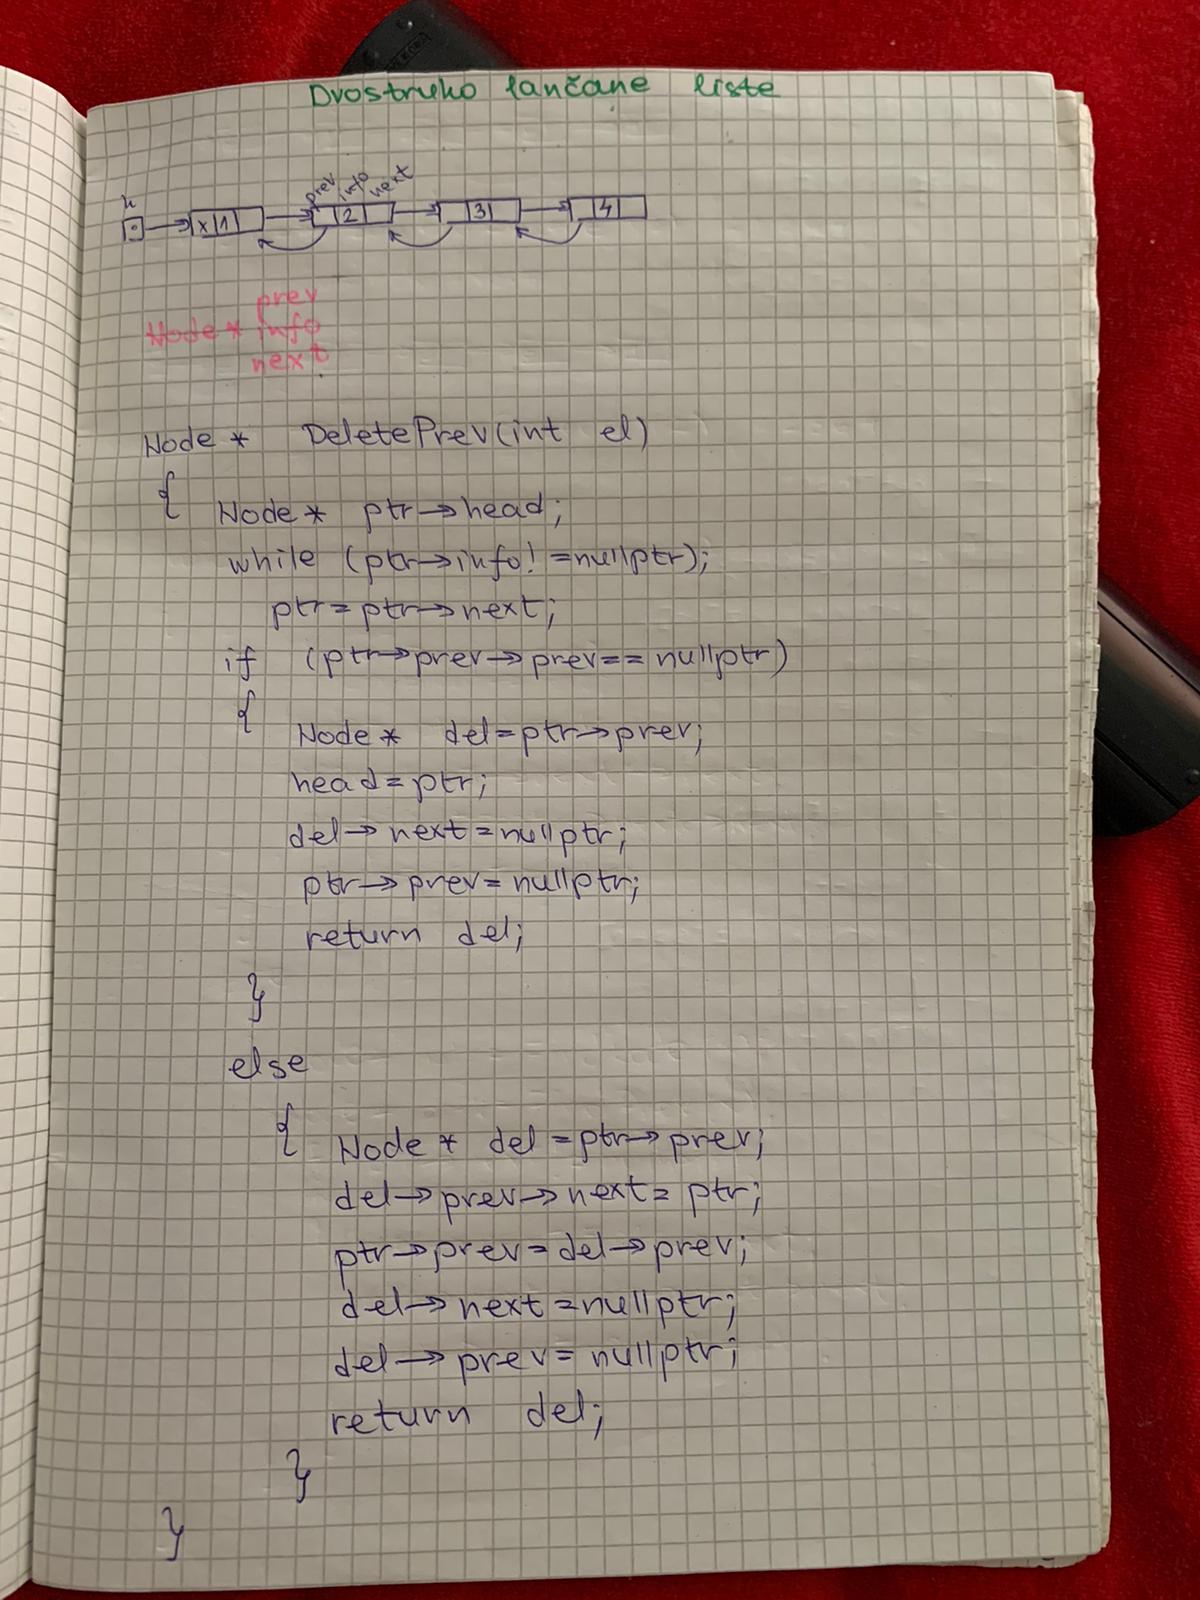 Dvostruko lančane liste
h
prev info next
x 1 2 3 4
prev
Node* info
next
Node* DeletePrev(int el)
{ Node* ptr→head;
while (ptr→info!=nullptr);
ptr=ptr→next;
if (ptr→prev→prev==nullptr)
{
Node* del=ptr→prev;
head=ptr;
del→next=nullptr;
ptr→prev=nullptr;
return del;
}
else
{ Node* del=ptr→prev;
del→prev→next=ptr;
ptr→prev=del→prev;
del→next=nullptr;
del→prev=nullptr;
return del;
}
}